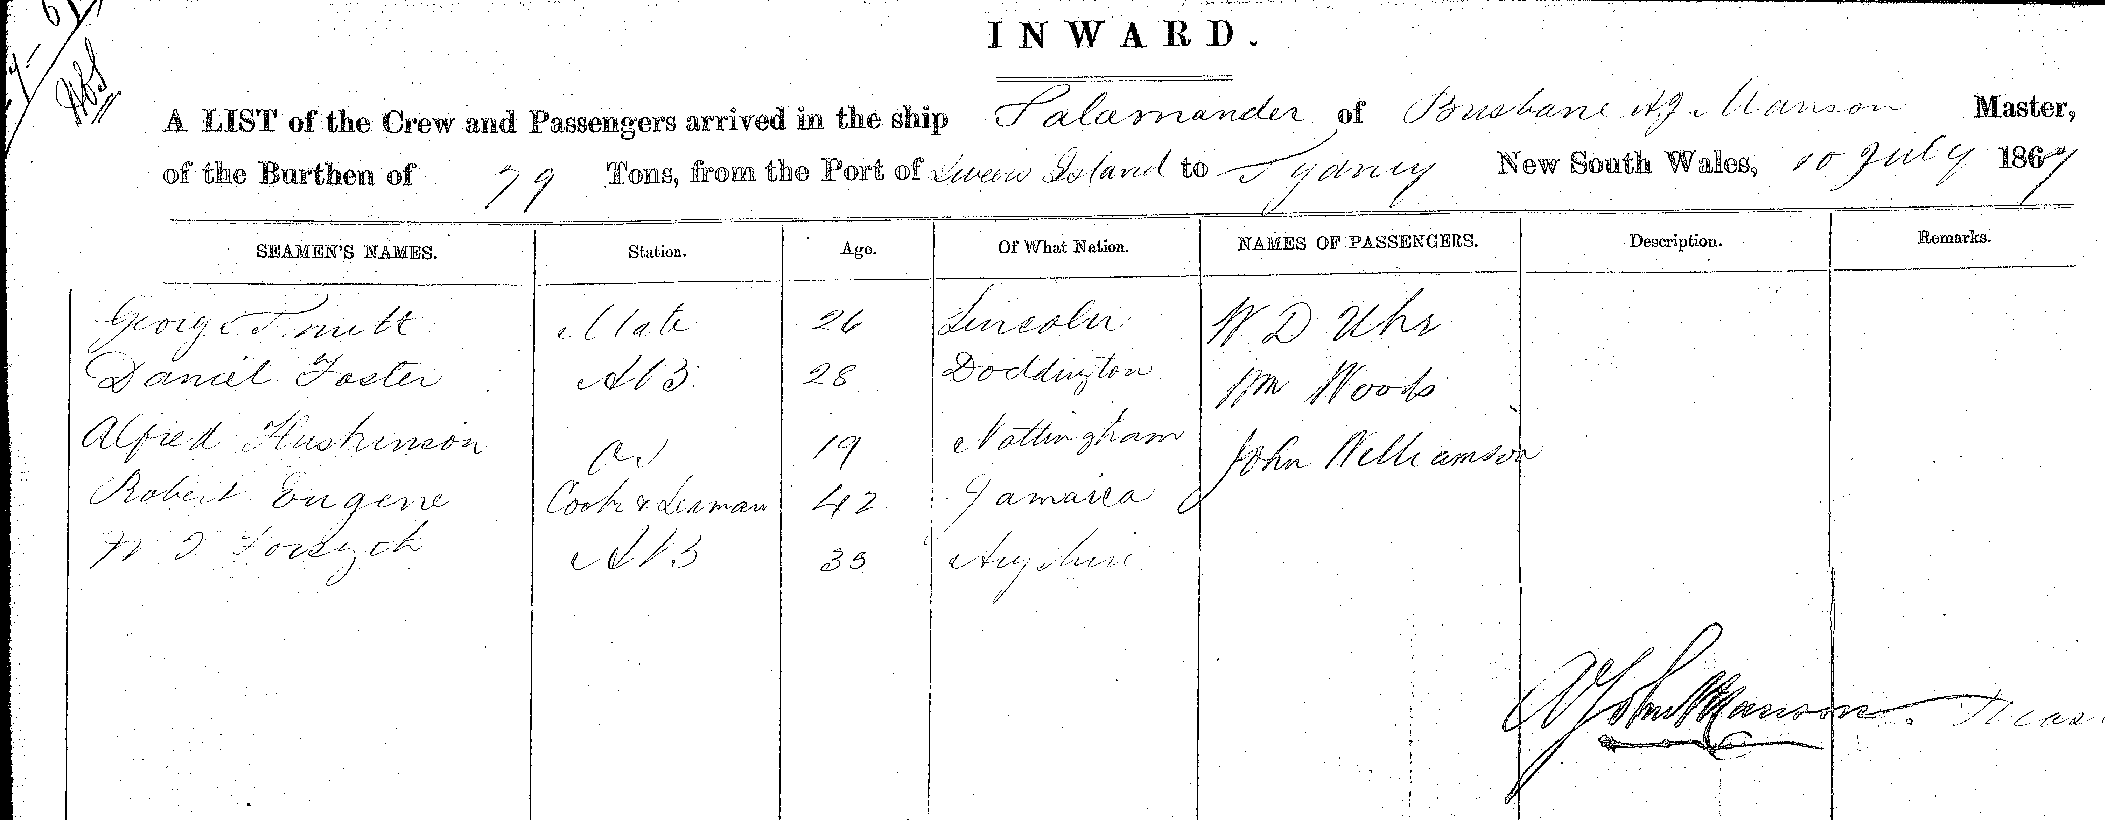 INWARD.
A LIST of the Crew and Passengers arrived in the ship Salamander of Brisbane A J Manson Master,
of the Burthen of 79 Tons, from the Port of Sweers Island to Sydney New South Wales, 10 July 1867
SEAMEN'S NAMES. Station. Age. Of What Nation. NAMES OF PASSENGERS. Description. Remarks.
George Smith Mate 26 Lincoln W D Uhr
Daniel Foster AB 28 Doddington Wm Woods
Alfred Huskinson OS 19 Nottingham John Williamson
Robert Eugene Cook & Seaman 42 Jamaica
W Forsyth AB 35 Ayrshire
A John Manson.